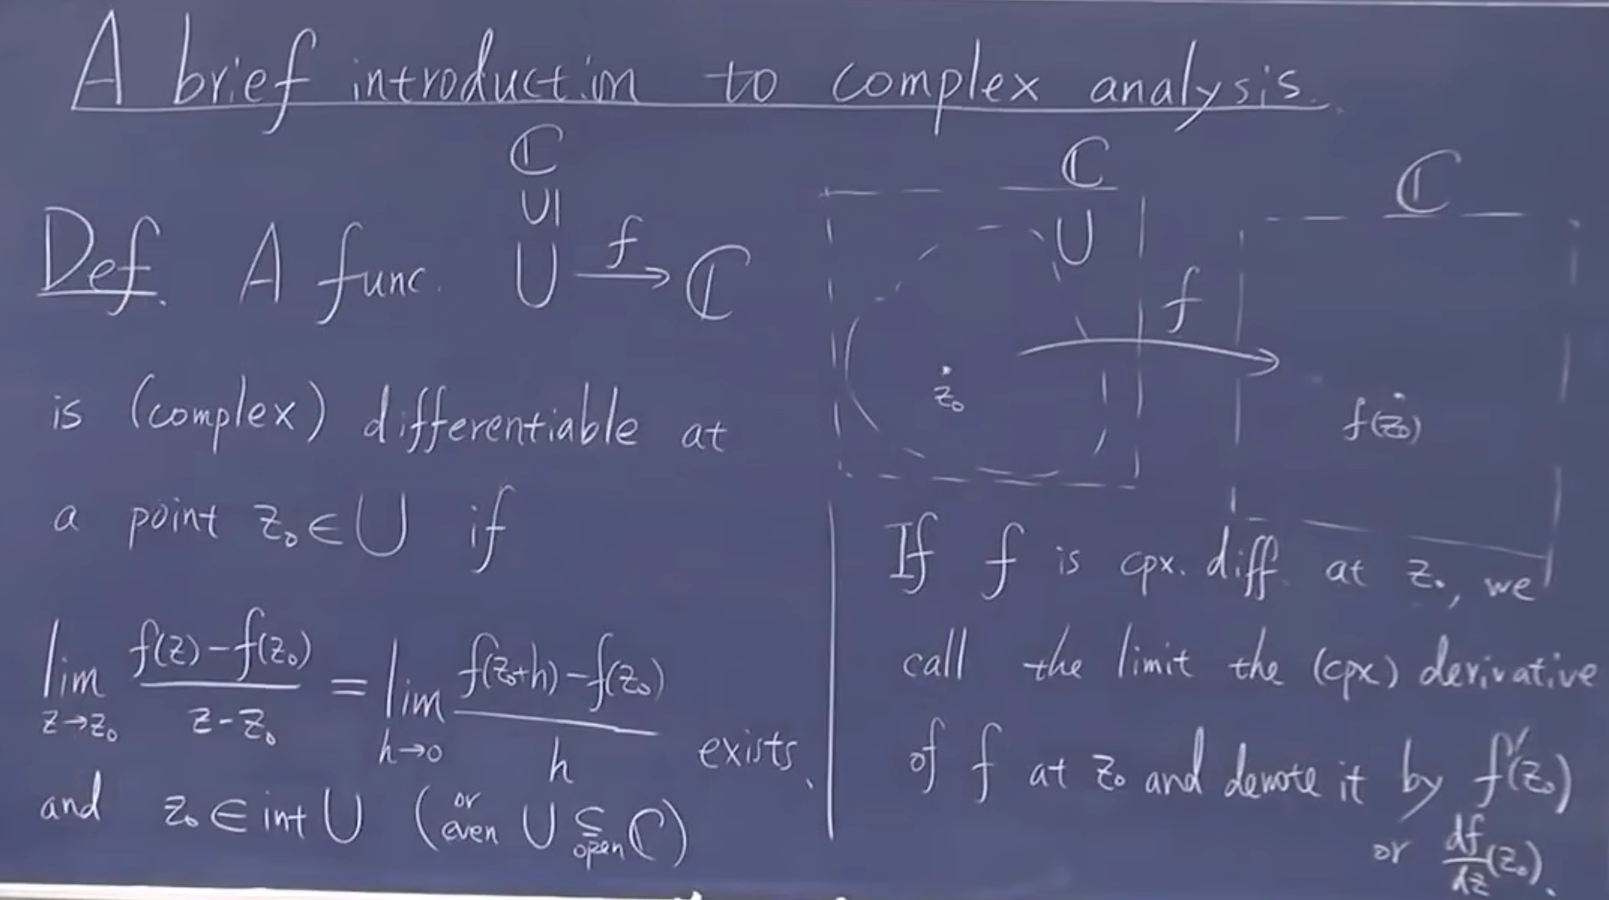 A brief introduction to complex analysis.
ℂ
∪|
Def. A func. U —f→ ℂ
is (complex) differentiable at
a point z₀ ∈ U if
lim z→z₀ (f(z)-f(z₀))/(z-z₀) = lim h→0 (f(z₀+h)-f(z₀))/h exists,
and z₀ ∈ int U (or even U ⊆open ℂ)
ℂ
U
z₀
f
ℂ
f(z₀)
If f is cpx. diff. at z₀, we
call the limit the (cpx) derivative
of f at z₀ and denote it by f'(z₀)
or df/dz(z₀).